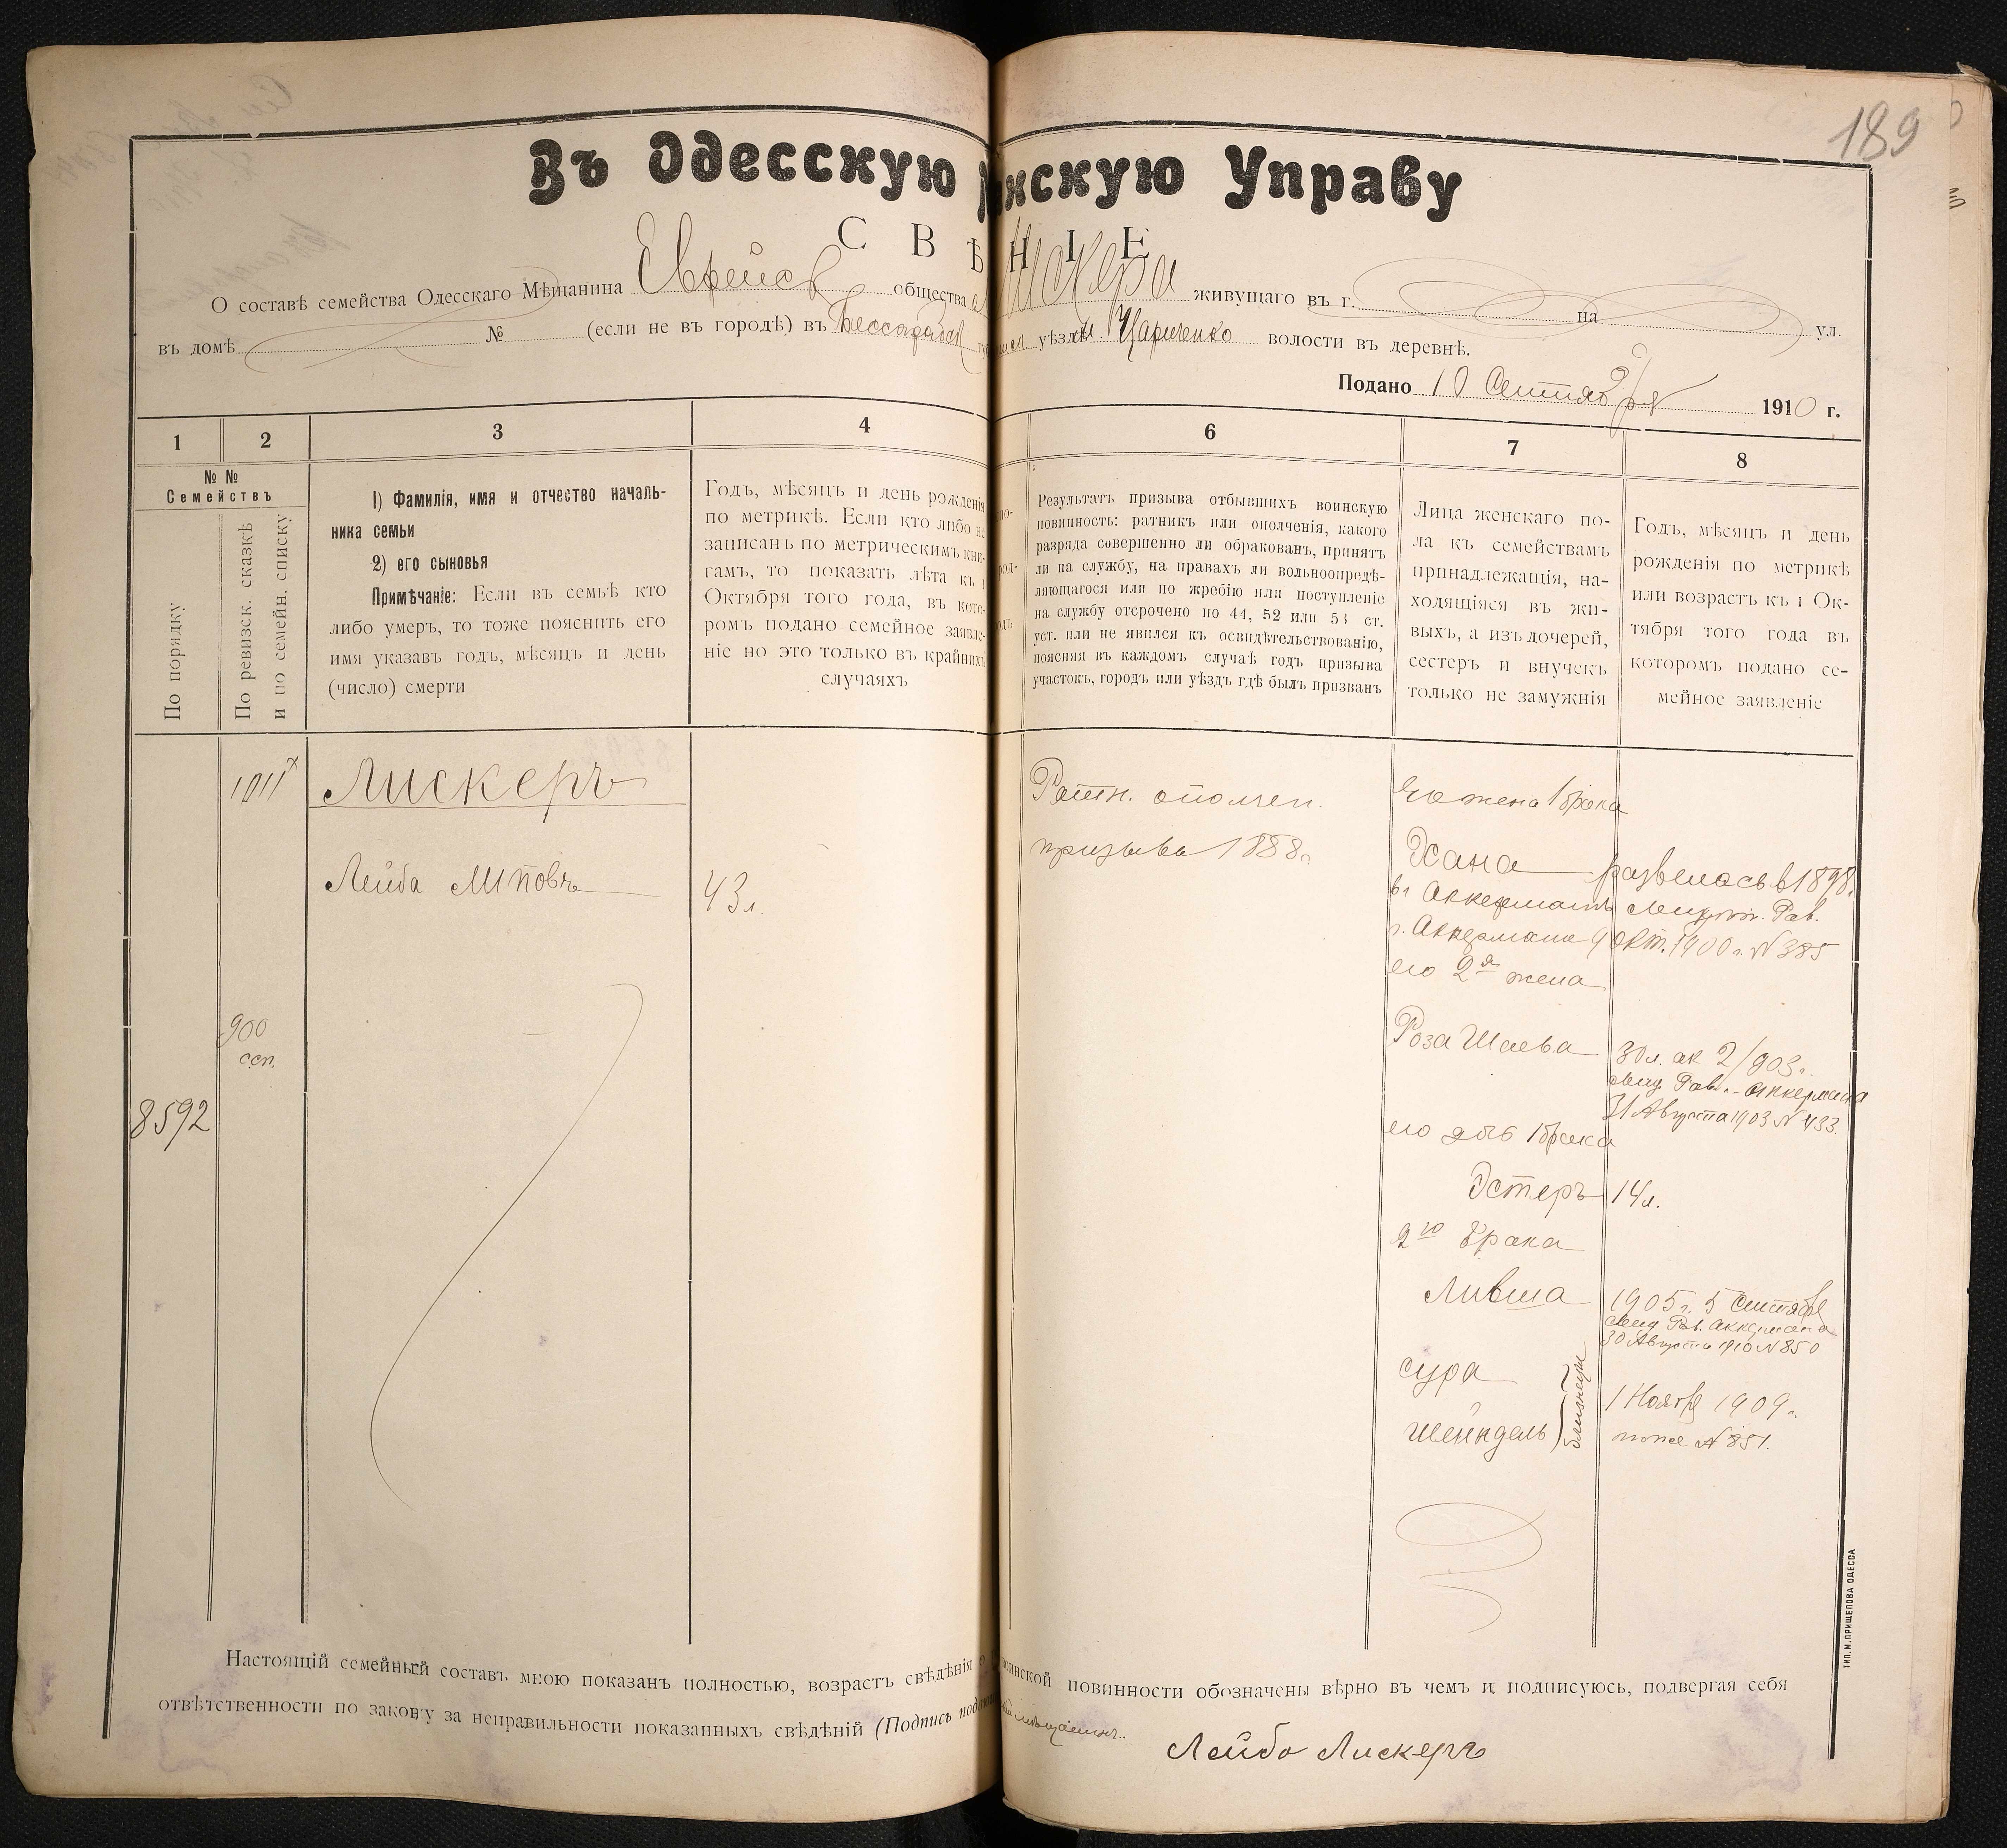 189
Въ Одесскую нскую Управу
СВѢНІЕ
О составѣ семейства Одесскаго Мѣщанина Еврейск общества Лискера живущаго въ г. на ул.
въ домѣ № (если не въ городѣ) въ Бессарабск уѣзда м. Цариченко волости въ деревнѣ.
Подано 10 Сентября 1910 г.
1 2 3 4 6 7 8
№ №
Семействъ
По порядку
По ревизск. сказкѣ
и по семейн. списку
1) Фамилія, имя и отчество началь-
ника семьи
2) его сыновья
Примѣчаніе: Если въ семьѣ кто
либо умеръ, то тоже пояснить его
имя указавъ годъ, мѣсяцъ и день
(число) смерти
Годъ, мѣсяцъ и день рожденія
по метрикѣ. Если кто либо не
записанъ по метрическимъ кни-
гамъ, то показать лѣта къ 1
Октября того года, въ кото-
ромъ подано семейное заявле-
ніе но это только въ крайнихъ
случаяхъ
Результатъ призыва отбывшихъ воинскую
повинность: ратникъ или ополченія, какого
разряда совершенно ли обракованъ, принятъ
ли на службу, на правахъ ли вольноопредѣ-
ляющагося или по жребію или поступленіе
на службу отсрочено по 44, 52 или 53 ст.
уст. или не явился къ освидѣтельствованію,
поясняя въ каждомъ случаѣ годъ призыва
участокъ, городъ или уѣздъ гдѣ былъ призванъ
Лица женскаго по-
ла къ семействамъ
принадлежащія, на-
ходящіяся въ жи-
выхъ, а изъ дочерей,
сестеръ и внучекъ
только не замужнія
Годъ, мѣсяцъ и день
рожденія по метрикѣ
или возрастъ къ 1 Ок-
тября того года въ
которомъ подано се-
мейное заявленіе
1011 Лискеръ
Лейба Миповъ 43 л.
900
8592
Ратн. ополчен.
призыва 1888 г.
Его жена 1 брака
Хана развелась в 1898 г.
въ Аккерманѣ Рав.
г. Аккермана 9 Окт. 1900 г. № 385
его 2я жена
Роза Шаева 30 л. ак 2/903 г.
Рав. г. Аккермана
31 Августа 1903 № 433.
его дѣв 1 брака
Эстеръ 14 л.
2го брака
Ливша 1905 г. 5 Сентября
Рав. Аккермана
30 Августа 1910 № 850
Сура
Шейндель близнецы
1 Ноября 1909 г.
тоже № 851.
Настоящій семейный составъ мною показанъ полностью, возрастъ свѣдѣнія о воинской повинности обозначены вѣрно въ чемъ и подписуюсь, подвергая себя
отвѣтственности по закону за неправильности показанныхъ свѣдѣній (Подпись мѣщанинъ.
Лейба Лискеръ
ТИП. М. ПРИЩЕПОВА ОДЕССА